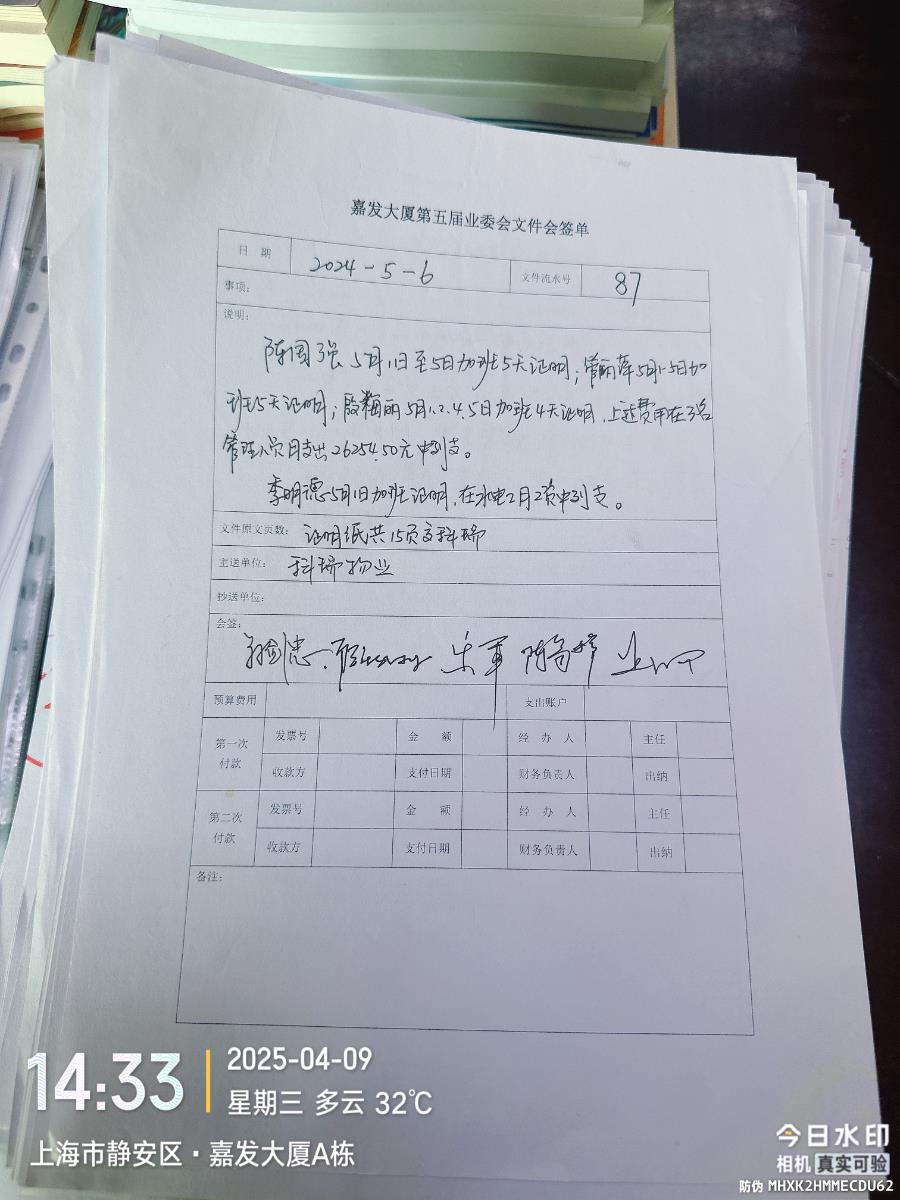 嘉发大厦第五届业委会文件会签单
日 期 2024-5-6 文件流水号 87
事项：
说明：
陈国强5月1日至5日加班5天证明；管丽萍5月1-5日加
班5天证明；殷梅丽5月1.2.4.5日加班4天证明，上述费用在3名
管理人员月支出26254.50元中列支。
李明德5月1日加班证明，在水电2月2资中列支。
文件原文页数： 证明纸共15页交科瑞
主送单位： 科瑞物业
抄送单位：
会签：
预算费用 支出账户
第一次付款 发票号 金 额 经 办 人 主任
收款方 支付日期 财务负责人 出纳
第二次付款 发票号 金 额 经 办 人 主任
收款方 支付日期 财务负责人 出纳
备注：
14:33 2025-04-09
星期三 多云 32℃
上海市静安区·嘉发大厦A栋
今日水印
相机 真实可验
防伪 MHXK2HMMECDU62